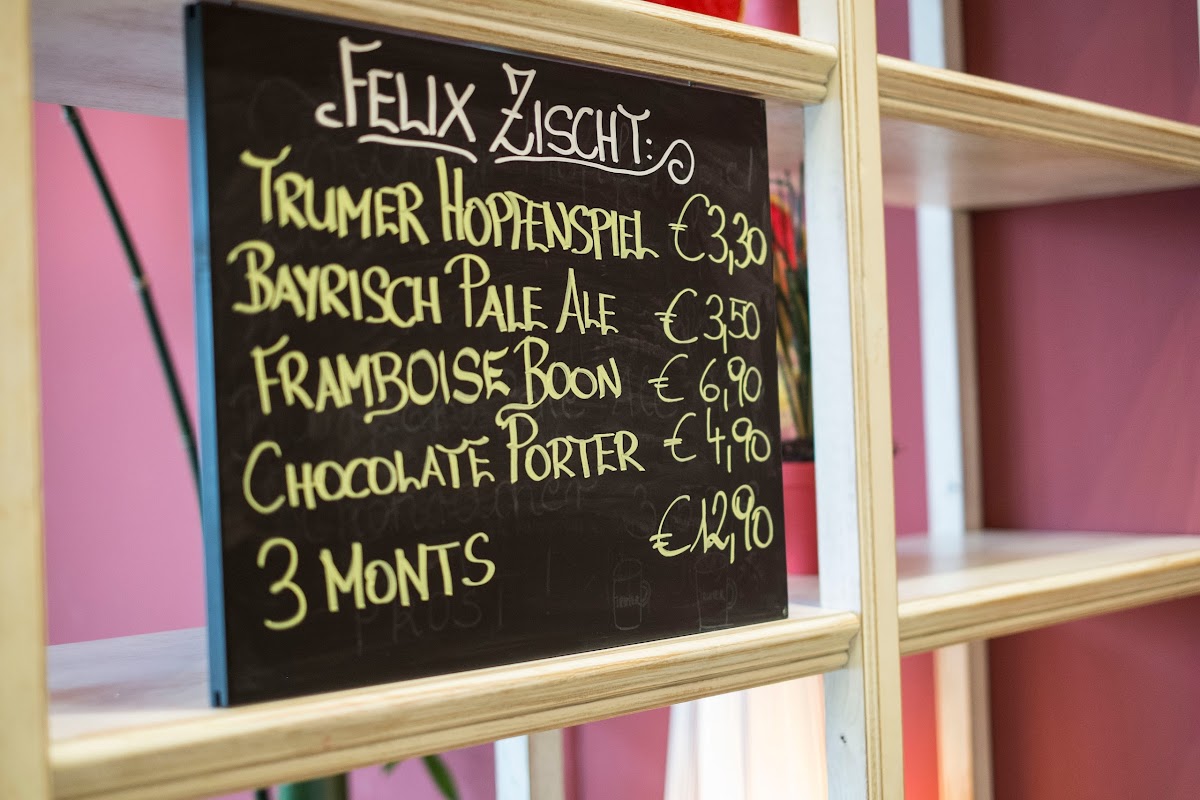 FELIX ZISCHT:
TRUMER HOPFENSPIEL €3,30
BAYRISCH PALE ALE € 3,50
FRAMBOISE BOON € 6,90
CHOCOLATE PORTER € 4,90
3 MONTS €12,90